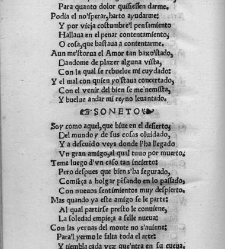 Para quanto dolor quisiessen darme.
Podia el no'sperar, harto ayudarme:
Y por vieja costumbre'l pensamiento
Hallava en el penar contentamiento,
O cosa, que bastava a contentarme.
Aun m'estorva el Amor tan baxo'stado,
Dandome de plazer alguna vista,
Con la qual se rebuelve mi cuydado:
Y el mal con quien yo'stava concertado,
Con el venir del bien se me'nemista,
Y buelve andar mi reyno levantado.
SONETO
Soy como aquel, que bive en el desierto,
Del mundo y de sus cosas olvidado,
Y a descuido veys donde l'ha llegado
Un gran amigo, al qual tuvo por muerto,
Teme luego d'un caso tan incierto:
Pero despues que bien s'ha segurado,
Comiença a holgar pensando en lo passado,
Con nuevos sentimientos muy despierto.
Mas quando ya este amigo se le parte:
Al qual partirse presto le conviene,
La soledad empieça a selle nueva:
Con las yervas del monte no s'aviene:
Para'l yermo le falta toda el arte
Y tiembla cada vez que'ntra en su cueva.